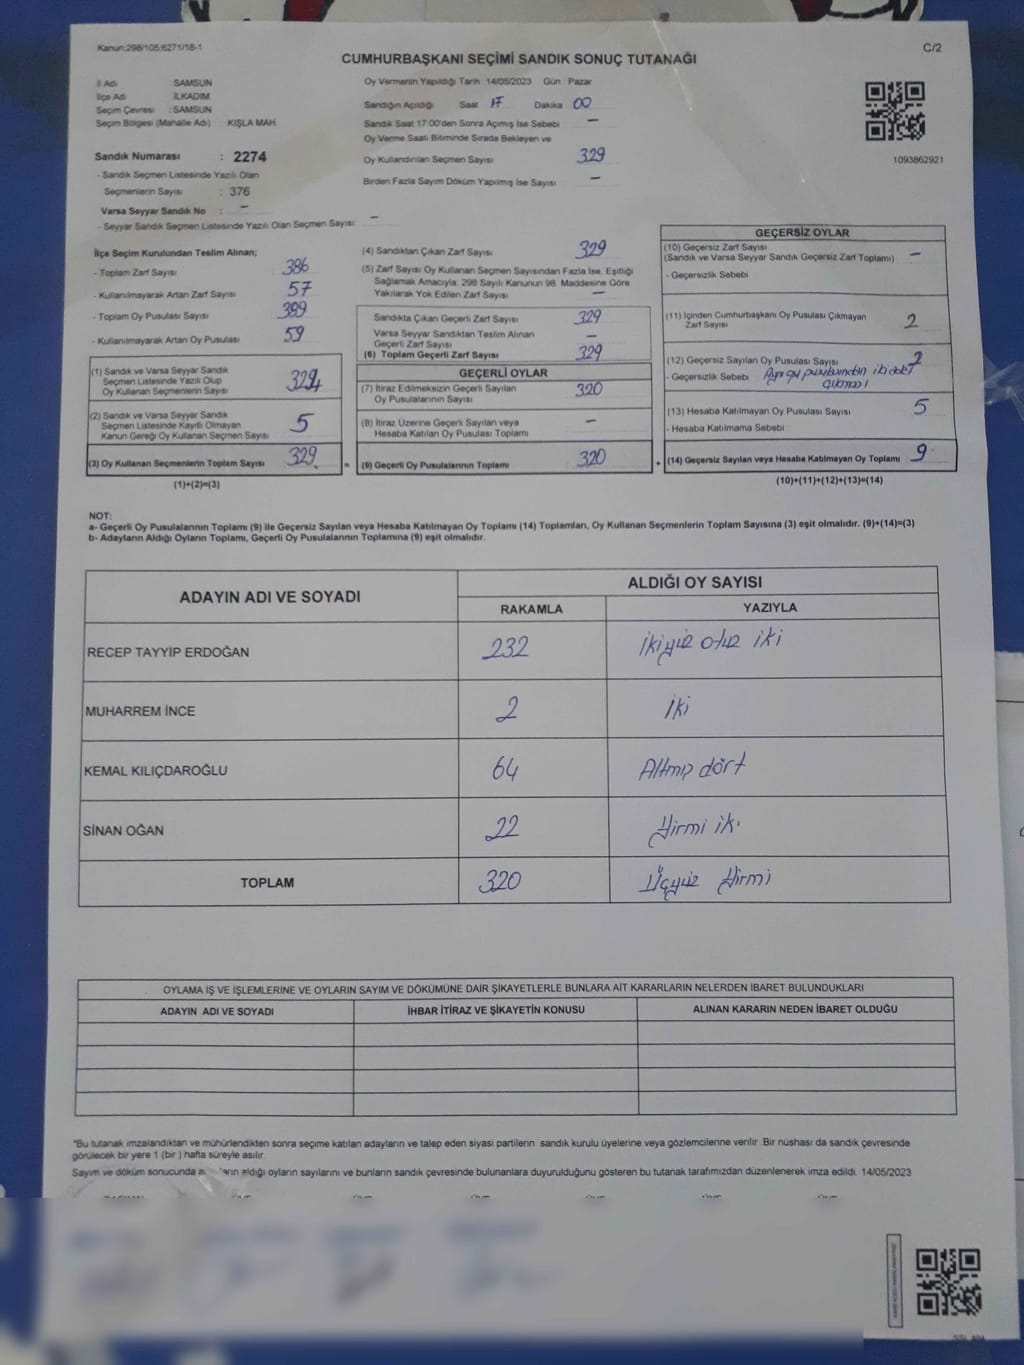 Kanun:298/105;6271/18-1
C/2
CUMHURBAŞKANI SEÇİMİ SANDIK SONUÇ TUTANAĞI
İl Adı SAMSUN
İlçe Adı İLKADIM
Seçim Çevresi : SAMSUN
Seçim Bölgesi (Mahalle Adı) : KIŞLA MAH.
Oy Vermenin Yapıldığı Tarih 14/05/2023 Gün Pazar
Sandığın Açıldığı Saat 17 Dakika 00
Sandık Saat 17:00'den Sonra Açılmış İse Sebebi –
Oy Verme Saati Bitiminde Sırada Bekleyen ve
Oy Kullandırılan Seçmen Sayısı 329
Birden Fazla Sayım Döküm Yapılmış İse Sayısı –
1093862921
Sandık Numarası : 2274
- Sandık Seçmen Listesinde Yazılı Olan
Seçmenlerin Sayısı : 376
Varsa Seyyar Sandık No : –
- Seyyar Sandık Seçmen Listesinde Yazılı Olan Seçmen Sayısı –
İlçe Seçim Kurulundan Teslim Alınan;
- Toplam Zarf Sayısı 386
- Kullanılmayarak Artan Zarf Sayısı 57
- Toplam Oy Pusulası Sayısı 399
- Kullanılmayarak Artan Oy Pusulası 59
(1) Sandık ve Varsa Seyyar Sandık
Seçmen Listesinde Yazılı Olup
Oy Kullanan Seçmenlerin Sayısı 324
(2) Sandık ve Varsa Seyyar Sandık
Seçmen Listesinde Kayıtlı Olmayan
Kanun Gereği Oy Kullanan Seçmen Sayısı 5
(3) Oy Kullanan Seçmenlerin Toplam Sayısı 329
(1)+(2)=(3)
(4) Sandıktan Çıkan Zarf Sayısı 329
(5) Zarf Sayısı Oy Kullanan Seçmen Sayısından Fazla İse, Eşitliği
Sağlamak Amacıyla; 298 Sayılı Kanunun 98. Maddesine Göre
Yakılarak Yok Edilen Zarf Sayısı –
Sandıkta Çıkan Geçerli Zarf Sayısı 329
Varsa Seyyar Sandıktan Teslim Alınan
Geçerli Zarf Sayısı –
(6) Toplam Geçerli Zarf Sayısı 329
GEÇERLİ OYLAR
(7) İtiraz Edilmeksizin Geçerli Sayılan
Oy Pusulalarının Sayısı 320
(8) İtiraz Üzerine Geçerli Sayılan veya
Hesaba Katılan Oy Pusulası Toplamı –
= (9) Geçerli Oy Pusulalarının Toplamı 320
GEÇERSİZ OYLAR
(10) Geçersiz Zarf Sayısı
(Sandık ve Varsa Seyyar Sandık Geçersiz Zarf Toplamı) –
- Geçersizlik Sebebi
(11) İçinden Cumhurbaşkanı Oy Pusulası Çıkmayan
Zarf Sayısı 2
(12) Geçersiz Sayılan Oy Pusulası Sayısı 2
- Geçersizlik Sebebi Aynı oy pusulasından iki adet
çıkması
(13) Hesaba Katılmayan Oy Pusulası Sayısı 5
- Hesaba Katılmama Sebebi
+ (14) Geçersiz Sayılan veya Hesaba Katılmayan Oy Toplamı : 9
(10)+(11)+(12)+(13)=(14)
NOT:
a- Geçerli Oy Pusulalarının Toplamı (9) ile Geçersiz Sayılan veya Hesaba Katılmayan Oy Toplamı (14) Toplamları, Oy Kullanan Seçmenlerin Toplam Sayısına (3) eşit olmalıdır. (9)+(14)=(3)
b- Adayların Aldığı Oyların Toplamı, Geçerli Oy Pusulalarının Toplamına (9) eşit olmalıdır.
ADAYIN ADI VE SOYADI
ALDIĞI OY SAYISI
RAKAMLA YAZIYLA
RECEP TAYYİP ERDOĞAN 232 İkiyüz otuz iki
MUHARREM İNCE 2 İki
KEMAL KILIÇDAROĞLU 64 Altmış dört
SİNAN OĞAN 22 Yirmi iki
TOPLAM 320 Üçyüz Yirmi
OYLAMA İŞ VE İŞLEMLERİNE VE OYLARIN SAYIM VE DÖKÜMÜNE DAİR ŞİKAYETLERLE BUNLARA AİT KARARLARIN NELERDEN İBARET BULUNDUKLARI
ADAYIN ADI VE SOYADI İHBAR İTİRAZ VE ŞİKAYETİN KONUSU ALINAN KARARIN NEDEN İBARET OLDUĞU
"Bu tutanak imzalandıktan ve mühürlendikten sonra seçime katılan adayların ve talep eden siyasi partilerin sandık kurulu üyelerine veya gözlemcilerine verilir .Bir nüshası da sandık çevresinde
görülecek bir yere 1 (bir ) hafta süreyle asılır.
Sayım ve döküm sonucunda aldığı oyların sayılarını ve bunların sandık çevresinde bulunanlara duyurulduğunu gösteren bu tutanak tarafımızdan düzenlenerek imza edildi. 14/05/2023